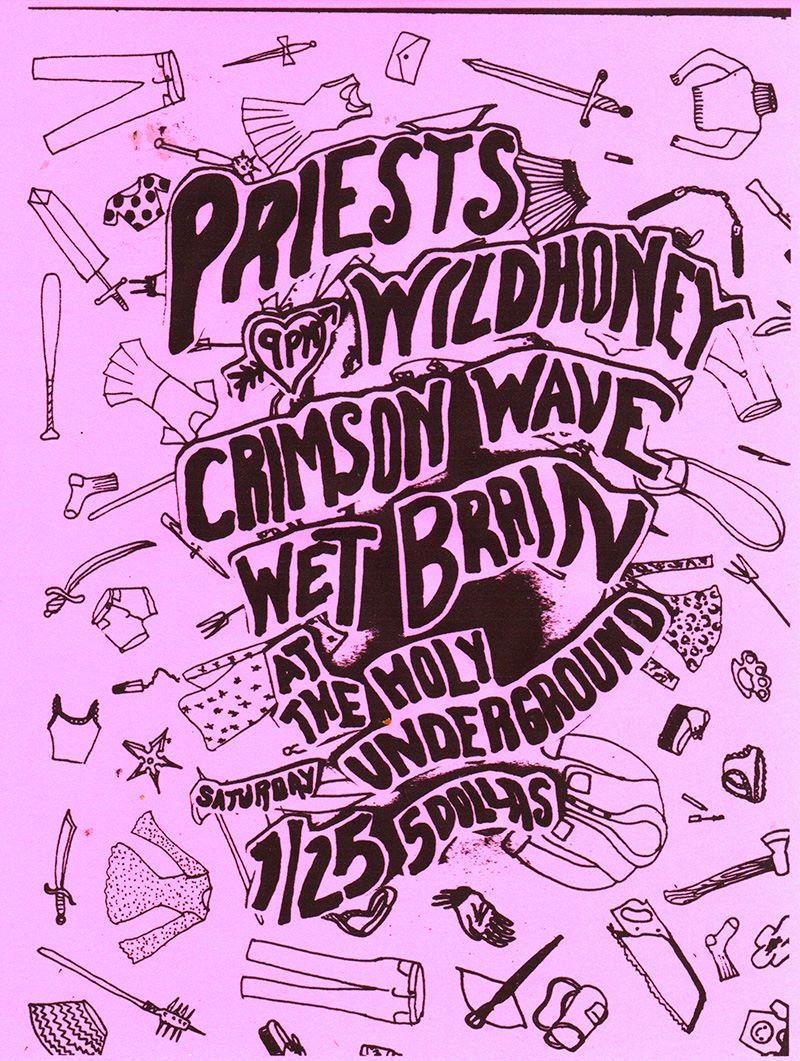 PRIESTS
WILDHONEY
9PM
CRIMSON WAVE
WET BRAIN
AT THE HOLY
UNDERGROUND
SATURDAY
1/25 5 DOLLAS